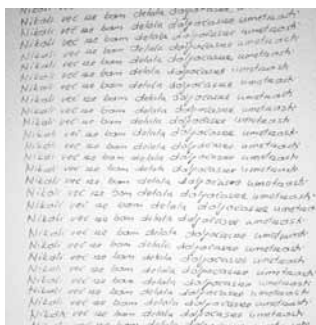 Nikoli več ne bom delala dolgočasne umetnosti
Nikoli več ne bom delala dolgočasne umetnosti
Nikoli več ne bom delala dolgočasne umetnosti
Nikoli več ne bom delala dolgočasne umetnosti
Nikoli več ne bom delala dolgočasne umetnosti
Nikoli več ne bom delala dolgočasne umetnosti
Nikoli več ne bom delala dolgočasne umetnosti
Nikoli več ne bom delala dolgočasne umetnosti
Nikoli več ne bom delala dolgočasne umetnosti
Nikoli več ne bom delala dolgočasne umetnosti
Nikoli več ne bom delala dolgočasne umetnosti
Nikoli več ne bom delala dolgočasne umetnosti
Nikoli več ne bom delala dolgočasne umetnosti
Nikoli več ne bom delala dolgočasne umetnosti
Nikoli več ne bom delala dolgočasne umetnosti
Nikoli več ne bom delala dolgočasne umetnosti
Nikoli več ne bom delala dolgočasne umetnosti
Nikoli več ne bom delala dolgočasne umetnosti
Nikoli več ne bom delala dolgočasne umetnosti
Nikoli več ne bom delala dolgočasne umetnosti
Nikoli več ne bom delala dolgočasne umetnosti
Nikoli več ne bom delala dolgočasne umetnosti
Nikoli več ne bom delala dolgočasne umetnosti
Nikoli več ne bom delala dolgočasne umetnosti